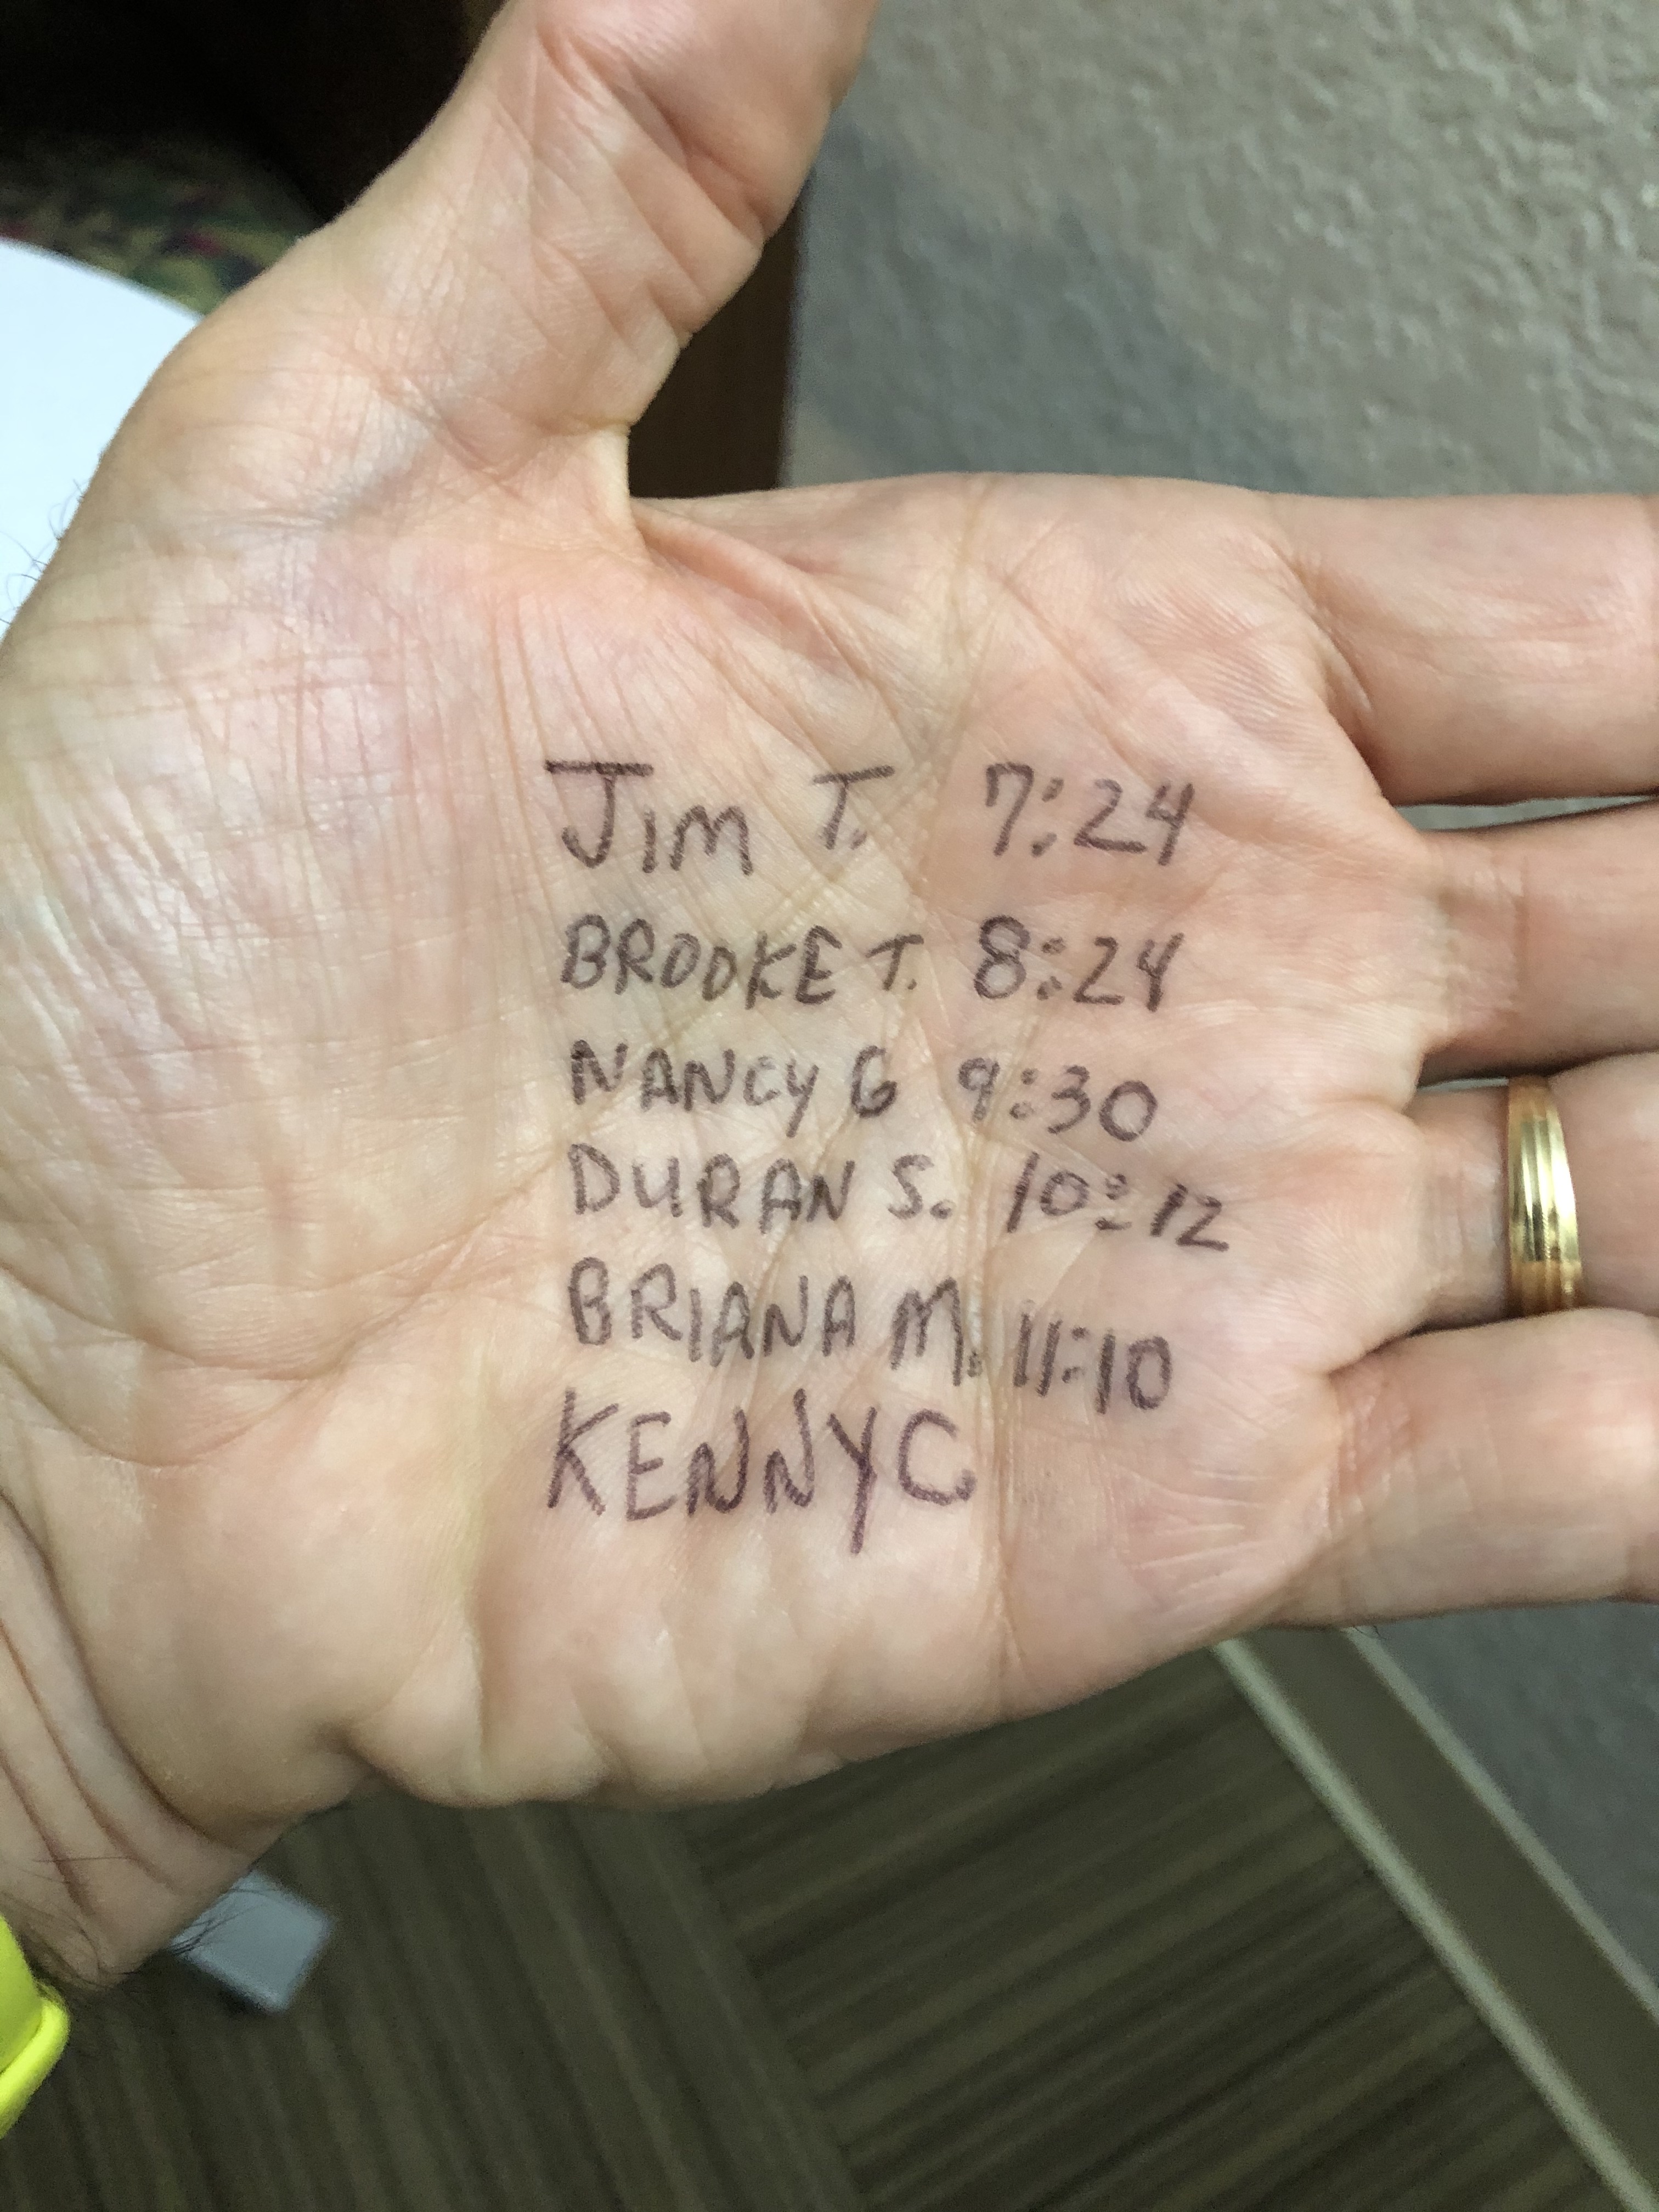 JIM T. 7:24
BROOKE T. 8:24
NANCY G 9:30
DURAN S. 10:12
BRIANA M. 11:10
KENNY C.